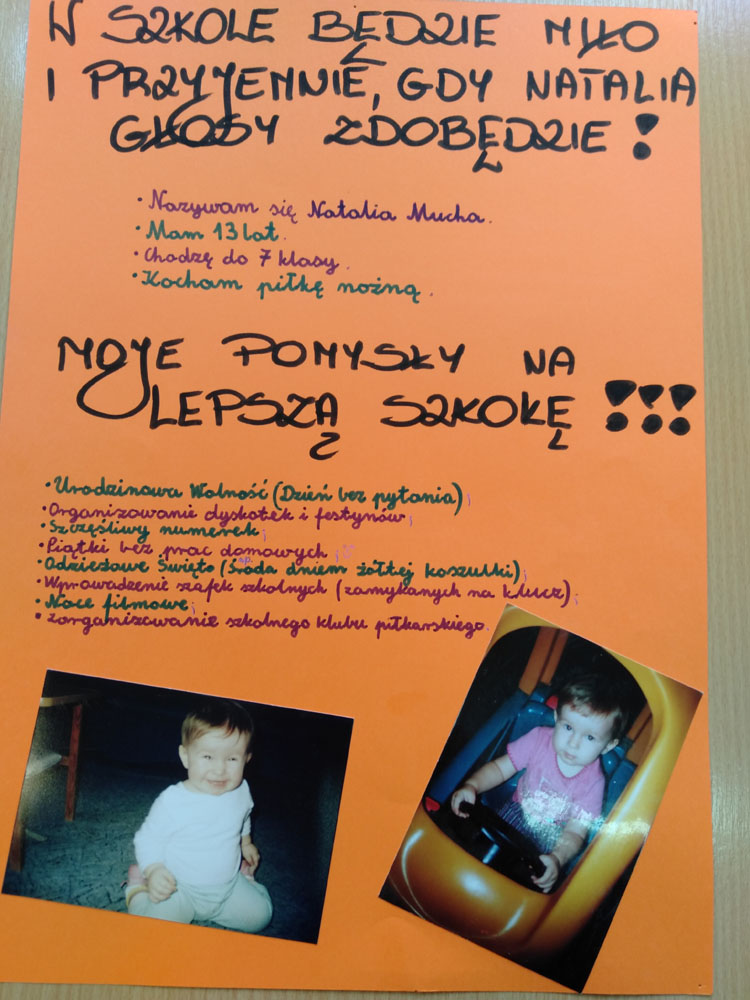 W SZKOLE BĘDZIE MIŁO
I PRZYJEMNIE, GDY NATALIA
GŁOSY ZDOBĘDZIE!
• Nazywam się Natalia Mucha.
• Mam 13 lat.
• Chodzę do 7 klasy.
• Kocham piłkę nożną.
MOJE POMYSŁY NA
LEPSZĄ SZKOŁĘ !!!
• Urodzinowa Wolność (Dzień bez pytania);
• Organizowanie dyskotek i festynów;
• Szczęśliwy numerek;
• Piątki bez prac domowych;
• Odzieżowe Święto (np. środa dniem żółtej koszulki);
• Wprowadzenie szafek szkolnych (zamykanych na klucz);
• Noce filmowe;
• Zorganizowanie szkolnego klubu piłkarskiego.